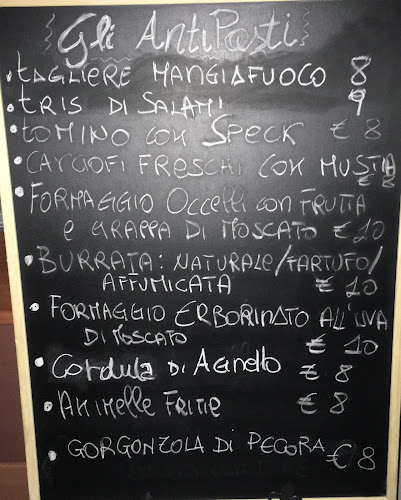 Gli AntiPasti
• TAGLIERE MANGIAFUOCO 8
• TRIS DI SALAMI 9
• TOMINO CON SPECK € 8
• CARCIOFI FRESCHI CON MUSTIA
€ 8
• FORMAGGIO Occelli con FRUTTA
e GRAPPA DI MOSCATO € 10
• BURRATA: NATURALE/TARTUFO/
AFFUMICATA € 10
• FORMAGGIO ERBORINATO ALL'UVA
DI MOSCATO
€ 10
• Cordula DI Agnello € 8
• Animelle Fritte € 8
• GORGONZOLA DI PECORA € 8